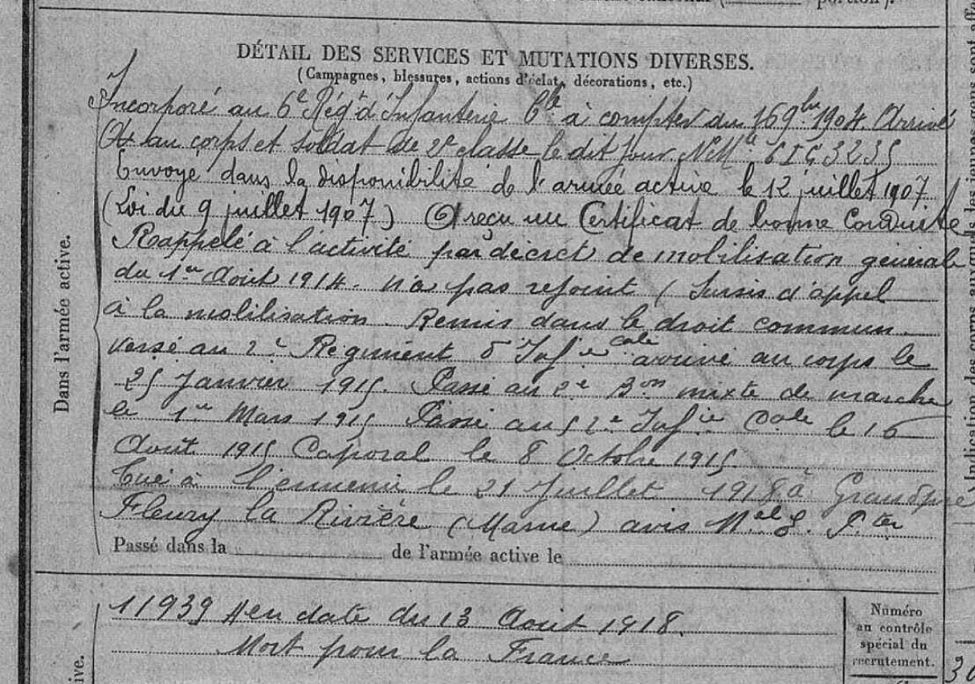 DÉTAIL DES SERVICES ET MUTATIONS DIVERSES.
(Campagnes, blessures, actions d'éclat, décorations, etc.)
Incorporé au 6e Régt d'Infanterie Cle à compter du 1904 Arrivé
au corps et soldat de 2e classe le dit jour No Mle 3235
Envoyé dans la disponibilité de l'armée active le 12 juillet 1907.
(Loi du 9 juillet 1907) a reçu un Certificat de bonne Conduite
Rappelé à l'activité par décret de mobilisation générale
du 1er Août 1914. n'a pas rejoint (Sursis d'appel
à la mobilisation. Remis dans le droit commun.
versé au 2e Régiment d'Infie Cale arrivé au corps le
25 Janvier 1915. Passé au 2e Bon mixte de marche
le 1er Mars 1915 Passé au 52e Infie Cale le 16
Août 1915 Caporal le 8 Octobre 1915.
Tué à l'ennemi le 21 Juillet 1918 à
Fleury la Rivière (Marne) avis Mel
Passé dans la de l'armée active le
11939 en date du 13 Août 1918.
Mort pour la France
Dans l'armée active.
Numéro
au contrôle
spécial du
recrutement.